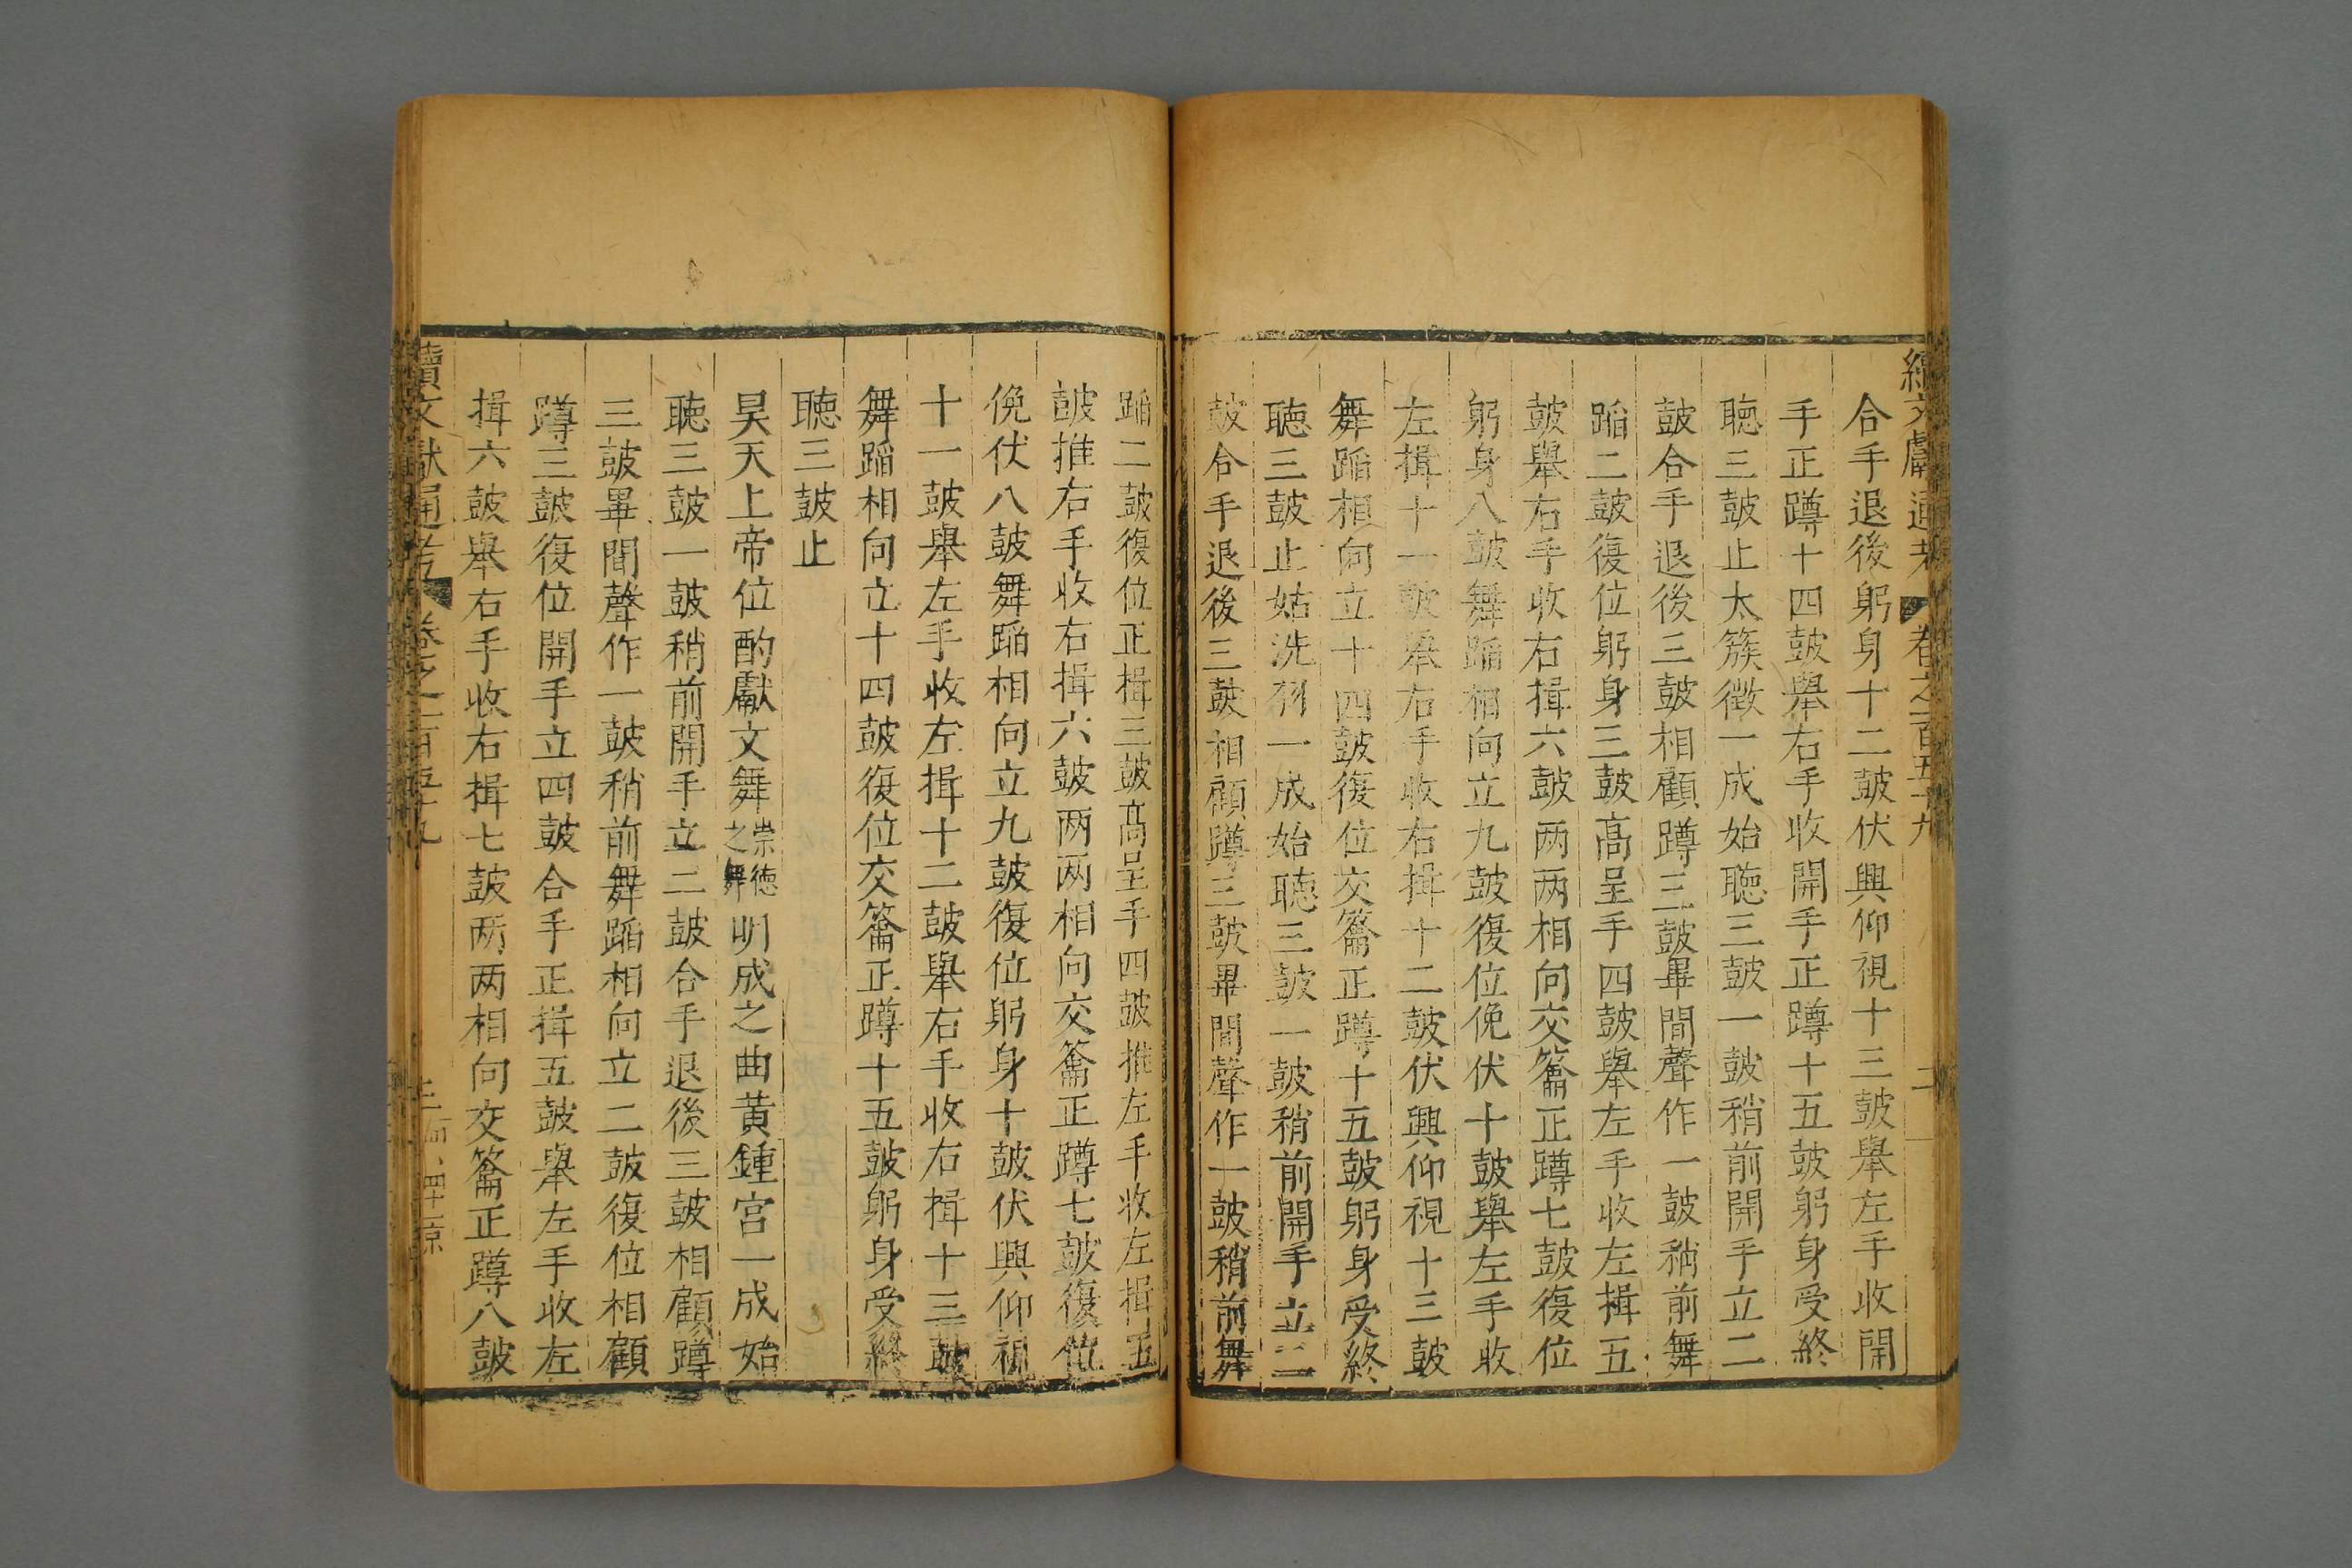 續文獻通考 卷之一百五十九 二
合手退後躬身十二皷伏興仰視十三皷舉左手收開
手正蹲十四皷舉右手收開手正蹲十五皷躬身受終
聴三皷止太簇徴一成始聴三皷一皷稍前開手立二
皷合手退後三皷相顧蹲三皷畢間聲作一皷稍前舞
蹈二皷復位躬身三皷高呈手四皷舉左手收左揖五
皷舉右手收右揖六皷两两相向交籥正蹲七皷復位
躬身八皷舞蹈相向立九皷復位俛伏十皷舉左手收
左揖十一皷舉右手收右揖十二皷伏興仰視十三皷
舞蹈相向立十四皷復位交籥正蹲十五皷躬身受終
聴三皷止姑洗羽一成始聴三皷一皷稍前開手立二
皷合手退後三皷相顧蹲三皷畢間聲作一皷稍前舞
蹈二皷復位正揖三皷高呈手四皷推左手收左揖五
皷推右手收右揖六皷两两相向交籥正蹲七皷復位
俛伏八皷舞蹈相向立九皷復位躬身十皷伏興仰視
十一皷舉左手收左揖十二皷舉右手收右揖十三皷
舞蹈相向立十四皷復位交籥正蹲十五皷躬身受終
聴三皷止
昊天上帝位酌獻文舞崇德之舞明成之曲黄鍾宮一成始
聴三皷一皷稍前開手立二皷合手退後三皷相顧蹲
三皷畢間聲作一皷稍前舞蹈相向立二皷復位相顧
蹲三皷復位開手立四皷合手正揖五皷舉左手收左
揖六皷舉右手收右揖七皷两两相向交籥正蹲八皷
續文獻通考 卷之一百五十九 三